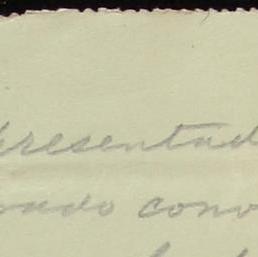 presentad
vado conv